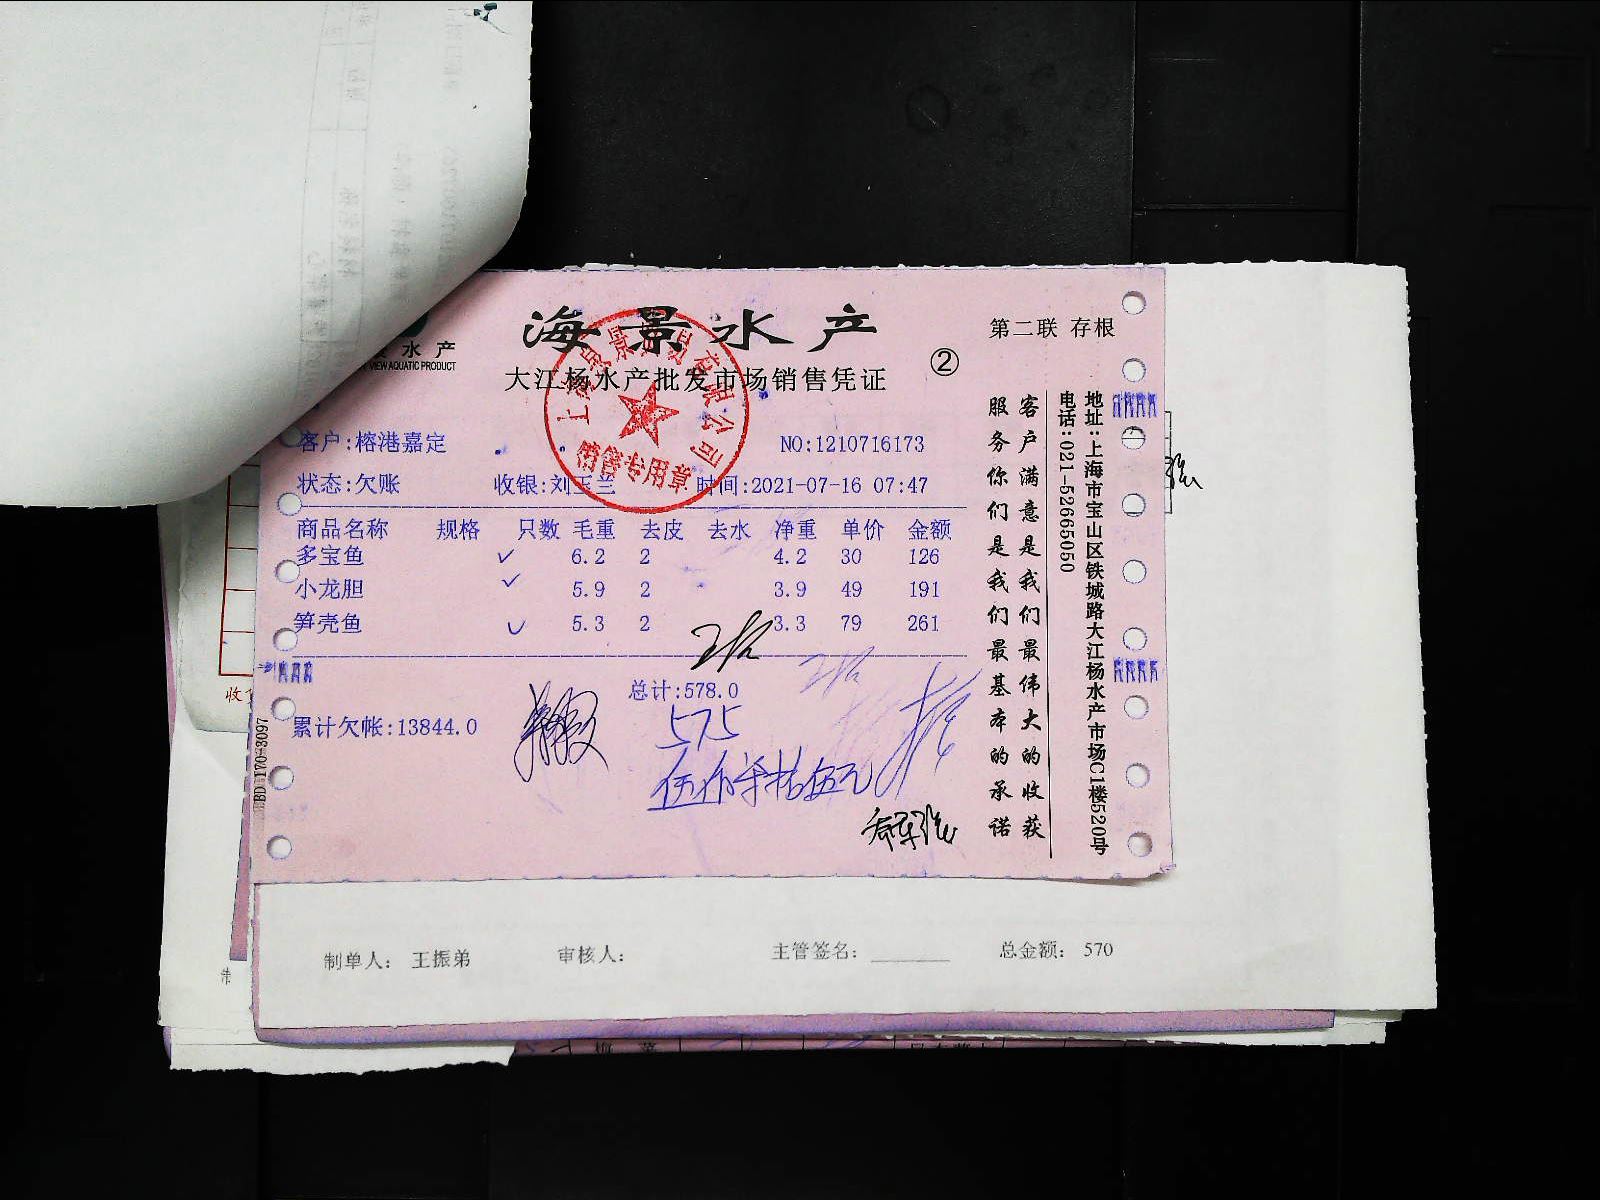 海景水产
第二联 存根
水产
VIEW AQUATIC PRODUCT
大江杨水产批发市场销售凭证
②
客户:榕港嘉定
NO:1210716173
状态:欠账 收银:刘玉兰 时间:2021-07-16 07:47
商品名称 规格 只数 毛重 去皮 去水 净重 单价 金额
多宝鱼 ✓ 6.2 2 4.2 30 126
小龙胆 ✓ 5.9 2 3.9 49 191
笋壳鱼 ✓ 5.3 2 3.3 79 261
总计:578.0
累计欠帐:13844.0
575
伍佰柒拾伍元
销售专用章
客户满意是我们最伟大的收获
服务你们是我们最基本的承诺
地址:上海市宝山区铁城路大江杨水产市场C1楼520号
电话:021-52665050
制单人: 王振弟 审核人: 主管签名: 总金额: 570
收
制